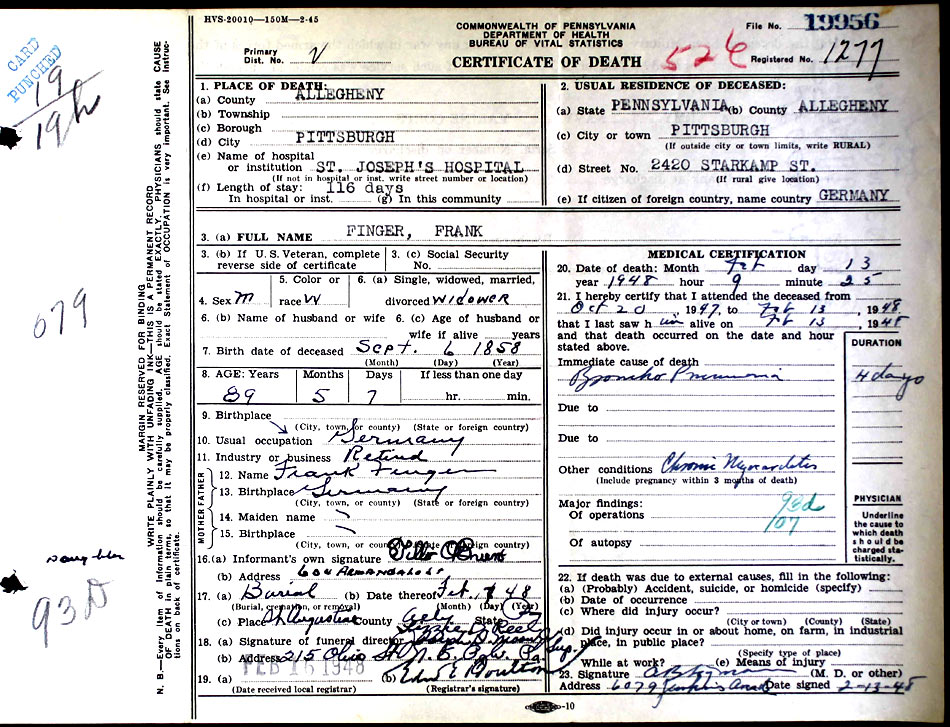 HVS-20010—150M—2-45
COMMONWEALTH OF PENNSYLVANIA
DEPARTMENT OF HEALTH
BUREAU OF VITAL STATISTICS
File No. 19956
Primary
Dist. No. V
CERTIFICATE OF DEATH
526
Registered No. 1277
CARD
PUNCHED
19
19th
079
daughter
93D
MARGIN RESERVED FOR BINDING
WRITE PLAINLY WITH UNFADING INK—THIS IS A PERMANENT RECORD
N. B.—Every item of information should be carefully supplied. AGE should be stated EXACTLY. PHYSICIANS should state CAUSE
OF DEATH in plain terms, so that it may be properly classified. Exact Statement of OCCUPATION is very important. See instruc-
tions on back of certificate.
1. PLACE OF DEATH:
(a) County ALLEGHENY
(b) Township
(c) Borough
(d) City PITTSBURGH
(e) Name of hospital
or institution ST. JOSEPH'S HOSPITAL
(If not in hospital or inst. write street number or location)
(f) Length of stay: 116 days
In hospital or inst. (g) In this community
2. USUAL RESIDENCE OF DECEASED:
(a) State PENNSYLVANIA (b) County ALLEGHENY
(c) City or town PITTSBURGH
(If outside city or town limits, write RURAL)
(d) Street No. 2420 STARKAMP ST.
(If rural give location)
(e) If citizen of foreign country, name country GERMANY
3. (a) FULL NAME FINGER, FRANK
3. (b) If U.S. Veteran, complete
reverse side of certificate
3. (c) Social Security
No.
4. Sex M
5. Color or
race W
6. (a) Single, widowed, married,
divorced WIDOWER
6. (b) Name of husband or wife
6. (c) Age of husband or
wife if alive years
7. Birth date of deceased Sept. 6 1858
(Month) (Day) (Year)
8. AGE: Years Months Days If less than one day
89 5 7 hr. min.
9. Birthplace
(City, town, or county) (State or foreign country)
10. Usual occupation Germany
11. Industry or business Retired
FATHER
12. Name Frank Finger
13. Birthplace Germany
(City, town, or county) (State or foreign country)
MOTHER
14. Maiden name
15. Birthplace
(City, town, or county) (State or foreign country)
16. (a) Informant's own signature
(b) Address
17. (a) Burial (b) Date thereof Feb. 48
(Burial, cremation, or removal) (Month) (Day) (Year)
(c) Place St Augustine County
18. (a) Signature of funeral director
(b) Address 215 Ohio St N.
19. (a) FEB 16 1948 (b)
(Date received local registrar) (Registrar's signature)
MEDICAL CERTIFICATION
20. Date of death: Month Feb day 13
year 1948 hour 9 minute 25
21. I hereby certify that I attended the deceased from
Oct 20, 1947, to Feb 13, 1948
that I last saw him alive on Feb 13, 1948
and that death occurred on the date and hour
stated above.
DURATION
Immediate cause of death
Broncho Pneumonia 4 days
Due to
Due to
Other conditions Chronic Myocarditis
(Include pregnancy within 3 months of death)
Major findings:
Of operations
93d
107
Of autopsy
PHYSICIAN
Underline
the cause to
which death
should be
charged sta-
tistically.
22. If death was due to external causes, fill in the following:
(a) (Probably) Accident, suicide, or homicide (specify)
(b) Date of occurrence
(c) Where did injury occur?
(City or town) (County) (State)
(d) Did injury occur in or about home, on farm, in industrial
place, in public place?
(Specify type of place)
While at work? (e) Means of injury
23. Signature (M. D. or other)
Address 6079 Jenkins Arcade Date signed 2-13-48
10